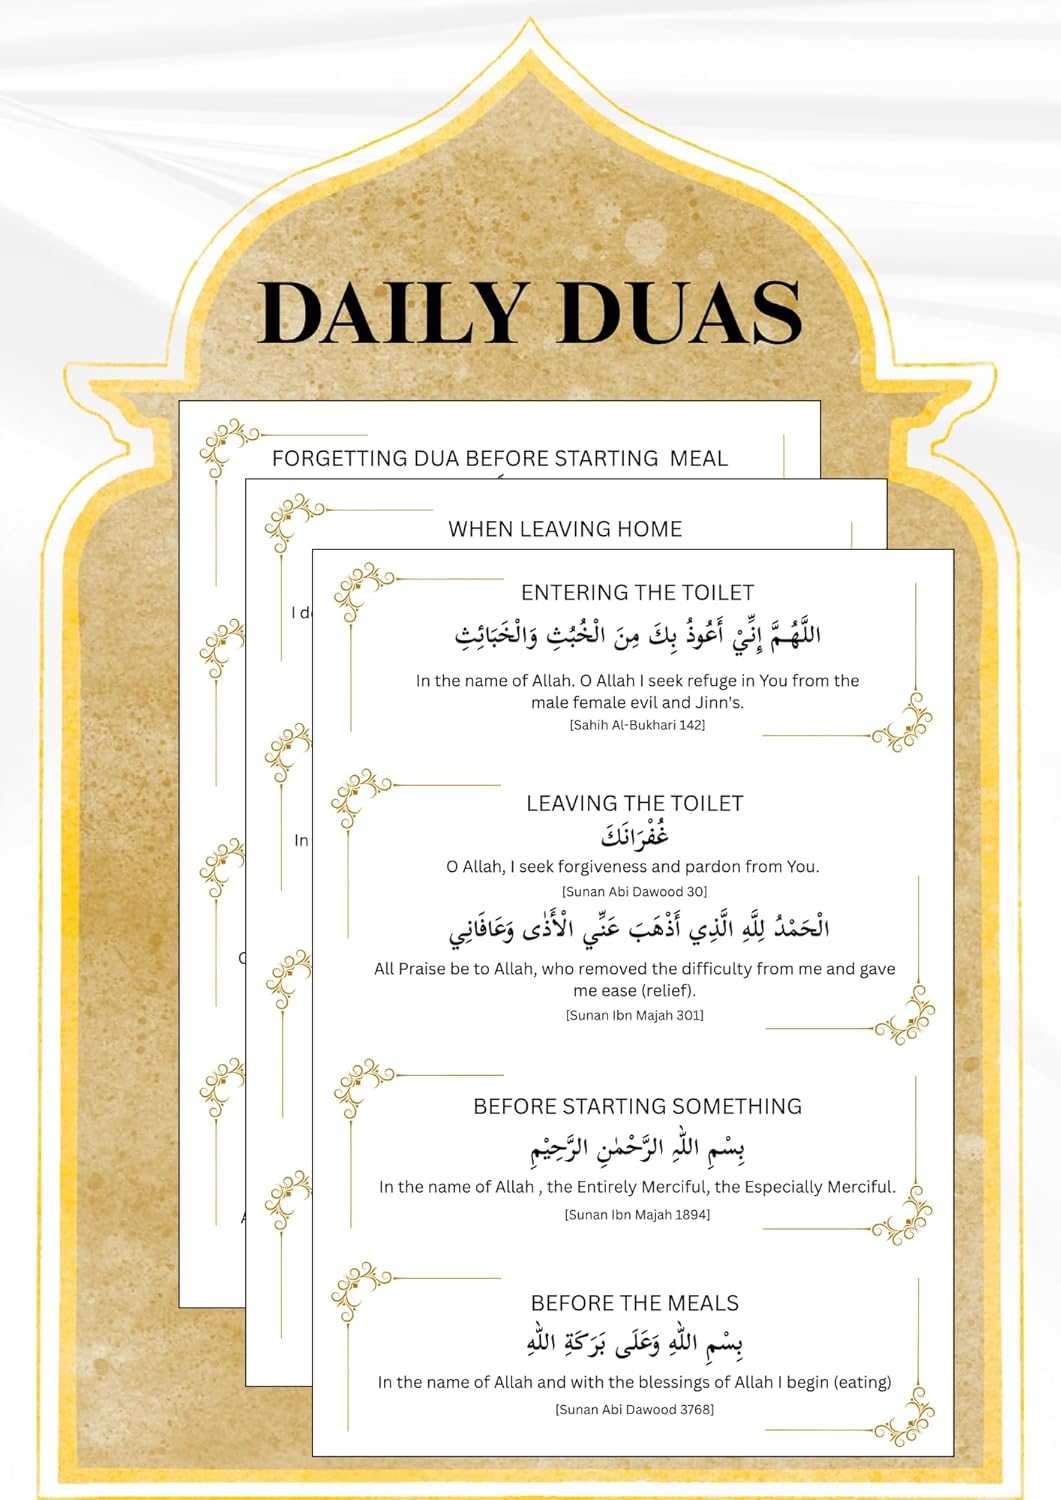 DAILY DUAS
FORGETTING DUA BEFORE STARTING MEAL
WHEN LEAVING HOME
I d
In
ENTERING THE TOILET
اللَّهُمَّ إِنِّيْ أَعُوذُ بِكَ مِنَ الْخُبُثِ وَالْخَبَائِثِ
In the name of Allah. O Allah I seek refuge in You from the
male female evil and Jinn's.
[Sahih Al-Bukhari 142]
LEAVING THE TOILET
غُفْرَانَكَ
O Allah, I seek forgiveness and pardon from You.
[Sunan Abi Dawood 30]
الْحَمْدُ لِلَّهِ الَّذِي أَذْهَبَ عَنِّي الْأَذٰى وَعَافَانِي
All Praise be to Allah, who removed the difficulty from me and gave
me ease (relief).
[Sunan Ibn Majah 301]
BEFORE STARTING SOMETHING
بِسْمِ اللّٰهِ الرَّحْمٰنِ الرَّحِيْمِ
In the name of Allah , the Entirely Merciful, the Especially Merciful.
[Sunan Ibn Majah 1894]
BEFORE THE MEALS
بِسْمِ اللّٰهِ وَعَلَى بَرَكَةِ اللّٰهِ
In the name of Allah and with the blessings of Allah I begin (eating)
[Sunan Abi Dawood 3768]